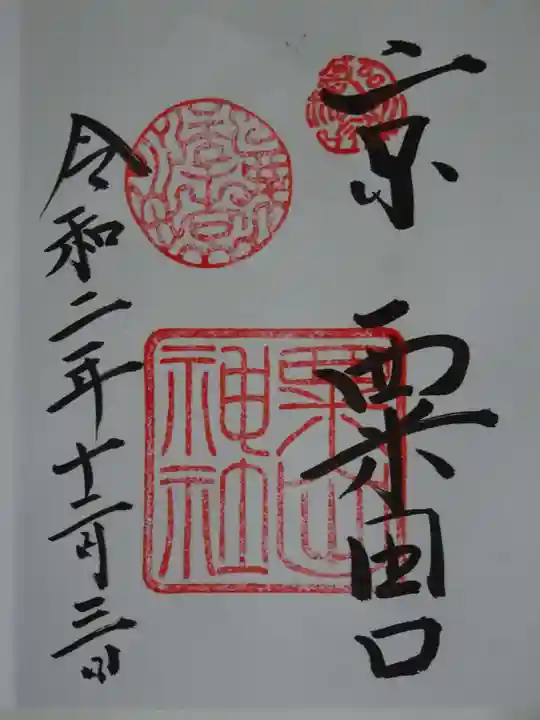 京 粟田口
粟田神社
令和二年十二月三日